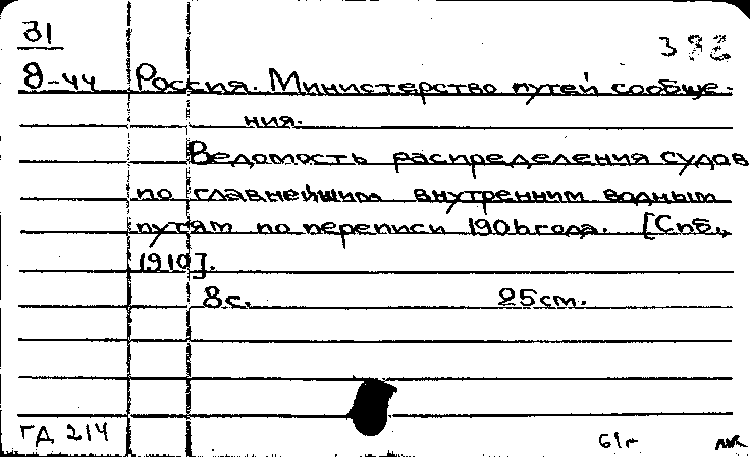 31
382
Э-44 Россия. Министерство путей сообще-
ния.
Ведомость распределения судов
по главнейшим внутренним водным
путям по переписи 1906 года. [Спб.,
1910].
8с. 25см.
ГД 214
61г